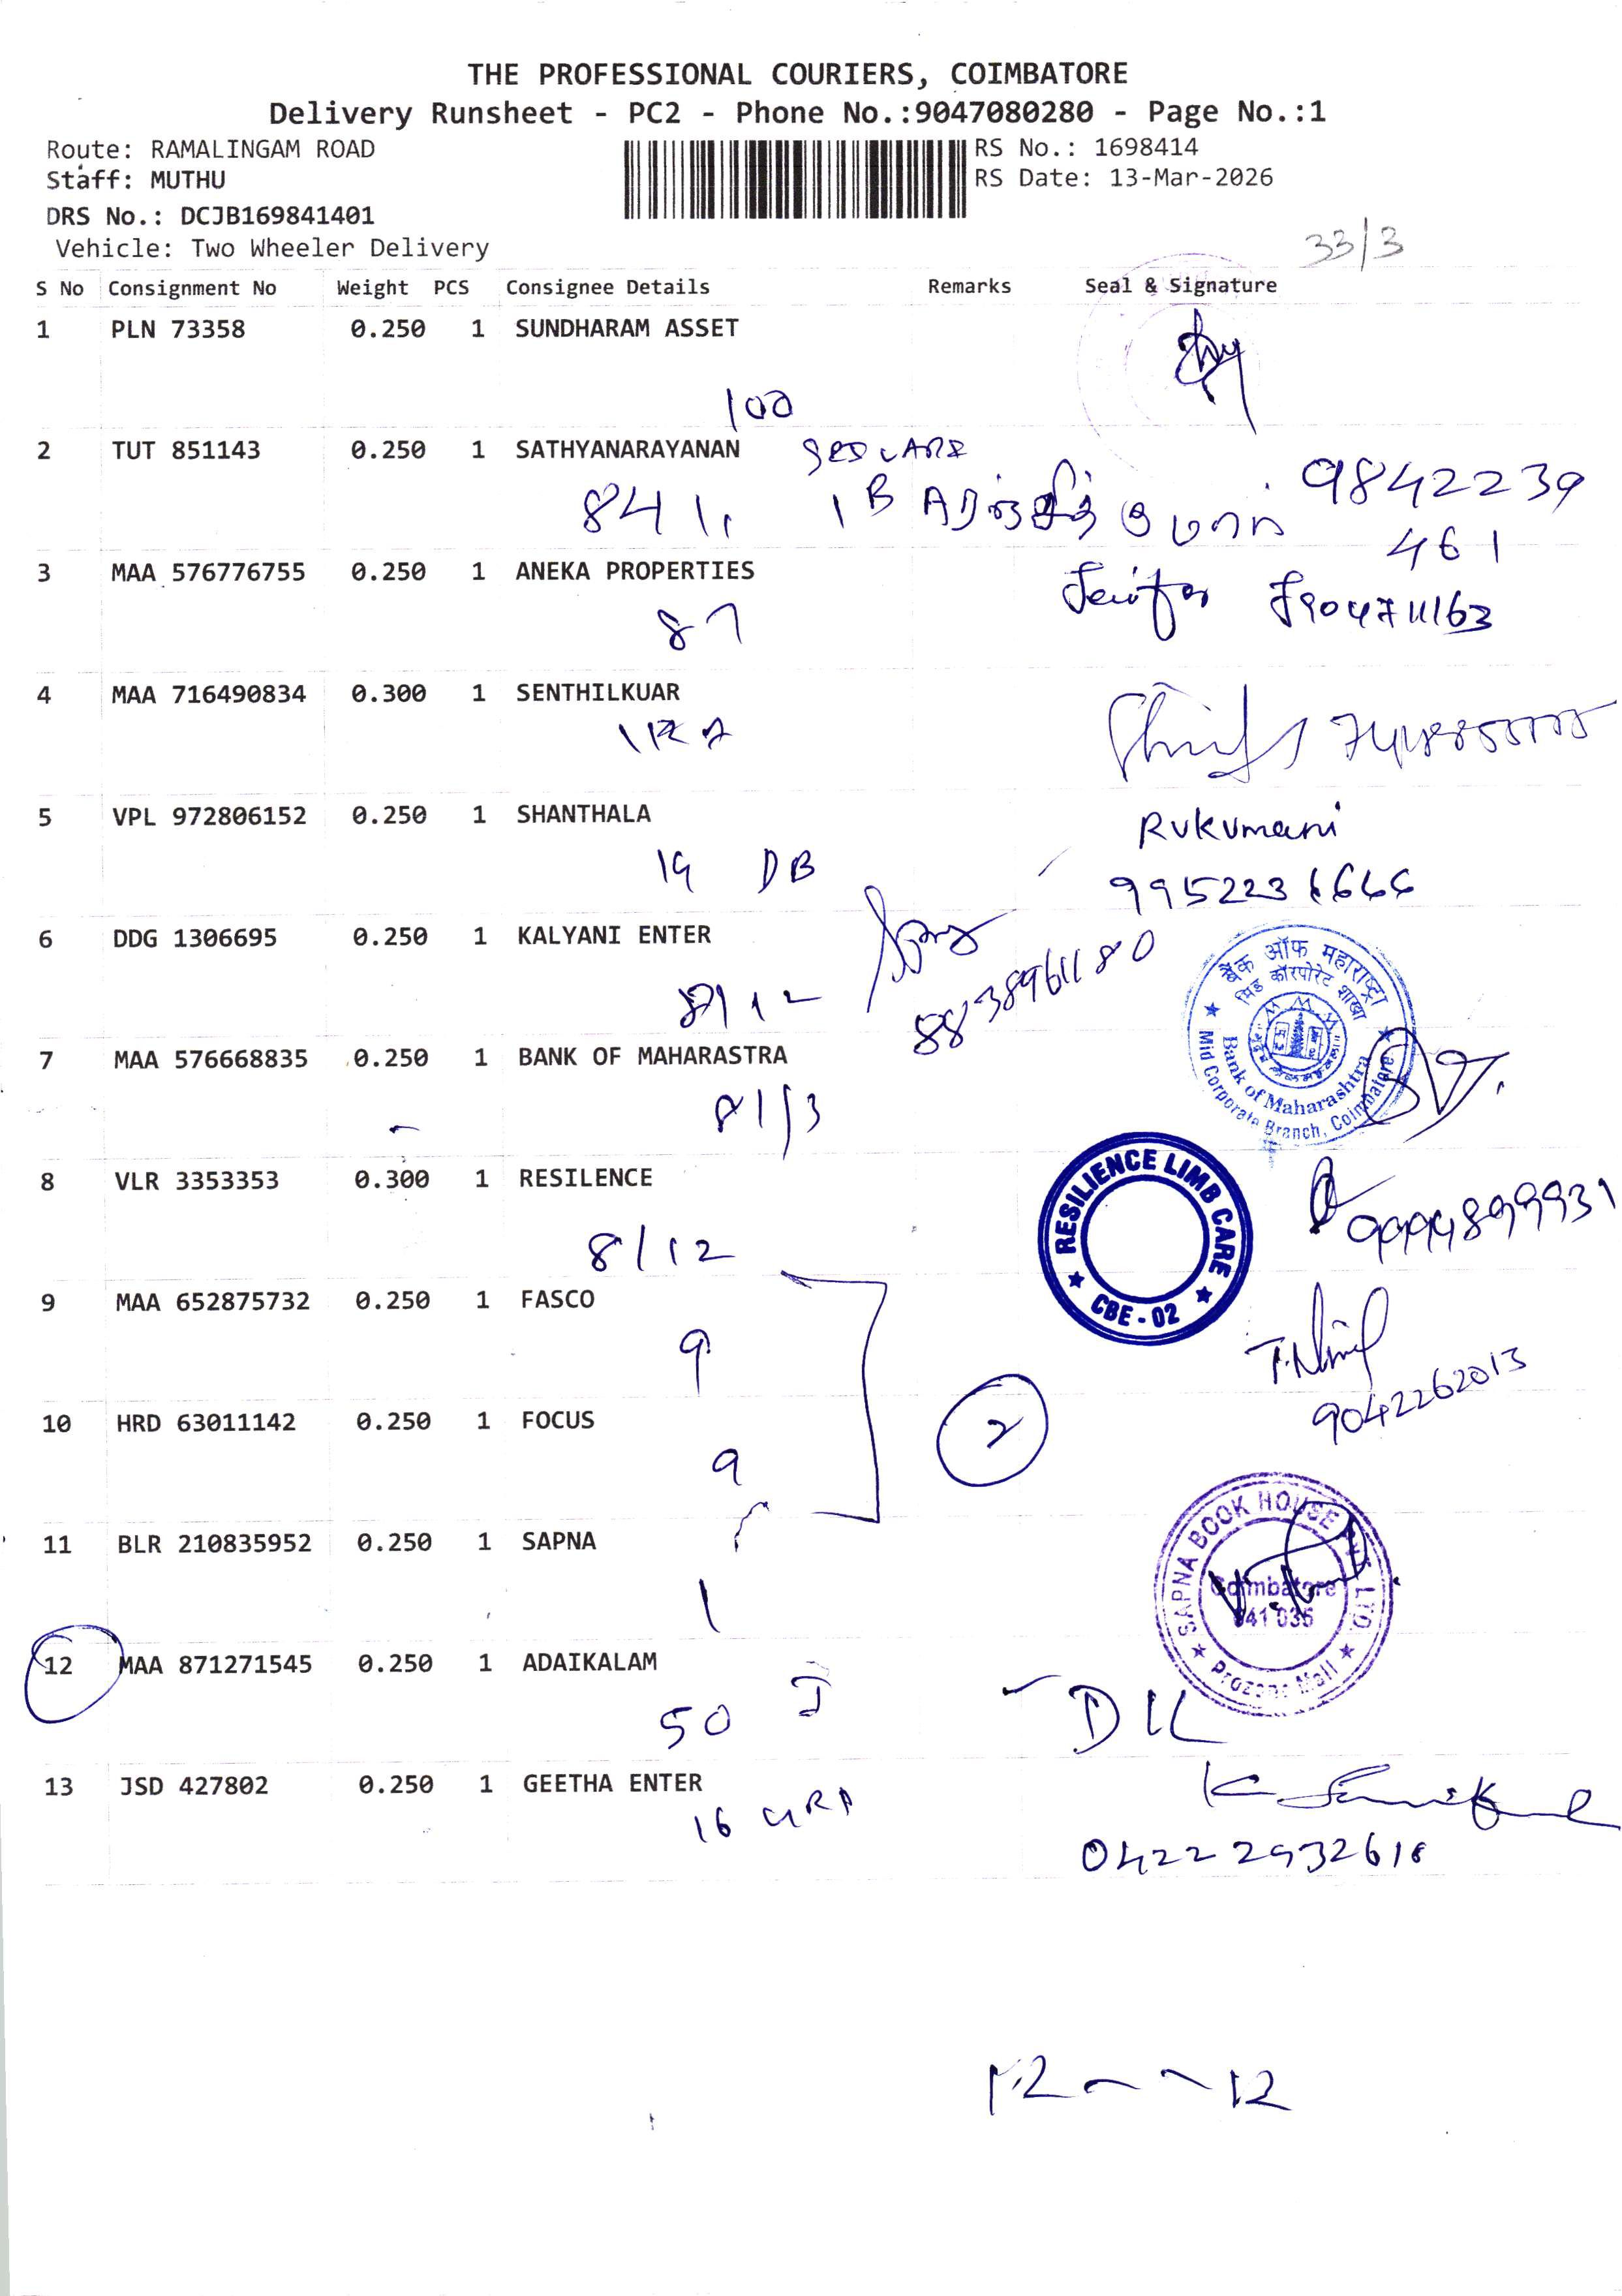 THE PROFESSIONAL COURIERS, COIMBATORE
Delivery Runsheet - PC2 - Phone No.:9047080280 - Page No.:1
Route: RAMALINGAM ROAD
RS No.: 1698414
Staff: MUTHU
RS Date: 13-Mar-2026
DRS No.: DCJB169841401
Vehicle: Two Wheeler Delivery
33/3
S No Consignment No Weight PCS Consignee Details Remarks Seal & Signature
1 PLN 73358 0.250 1 SUNDHARAM ASSET
100
2 TUT 851143 0.250 1 SATHYANARAYANAN
841, 1B 9842239
461
3 MAA 576776755 0.250 1 ANEKA PROPERTIES
87
4 MAA 716490834 0.300 1 SENTHILKUAR
5 VPL 972806152 0.250 1 SHANTHALA
Rukumani
19 DB
6 DDG 1306695 0.250 1 KALYANI ENTER
8838961180
बैंक ऑफ महाराष्ट्र
मिड कॉरपोरेट शाखा
Bank of Maharashtra
Mid Corporate Branch, Coimbatore
7 MAA 576668835 0.250 1 BANK OF MAHARASTRA
81/3
8 VLR 3353353 0.300 1 RESILENCE
RESILIENCE LIMB CARE
CBE - 02
8/12
9 MAA 652875732 0.250 1 FASCO
9
9042262013
10 HRD 63011142 0.250 1 FOCUS
2
9
11 BLR 210835952 0.250 1 SAPNA
SAPNA BOOK HOUSE PVT LTD.
Coimbatore
641 035
Prozone Mall
1
12 MAA 871271545 0.250 1 ADAIKALAM
50 I
DL
13 JSD 427802 0.250 1 GEETHA ENTER
16
12 - - 12